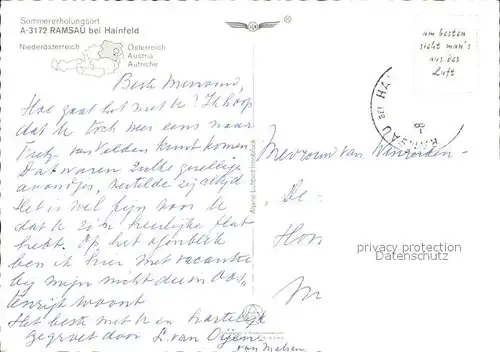 Sommererholungsort
A-3172 RAMSAU bei Hainfeld
Niederösterreich
Österreich
Austria
Autriche
®
am besten
sieht man's
aus der
Luft
RAMSAU BEI HAI
8
Beste Mevrouw,
Hoe gaat het met U? Ik hoop
dat U toch weer eens naar
van Velden kunt komen
Dat waren zulke gezellige
avondjes, vertelde zij altijd
Het is wel fijn voor U
dat U zo'n heerlijke flat
hebt. Op het ogenblik
ben ik hier met vacantie
bij mijn nicht die in Oos-
tenrijk woont
Het beste met U en hartelijk
gegroet door L. van
Mevrouw van
De
Hon
Alpine Luftbild Innsbruck
privacy protection
VERDENDUNG